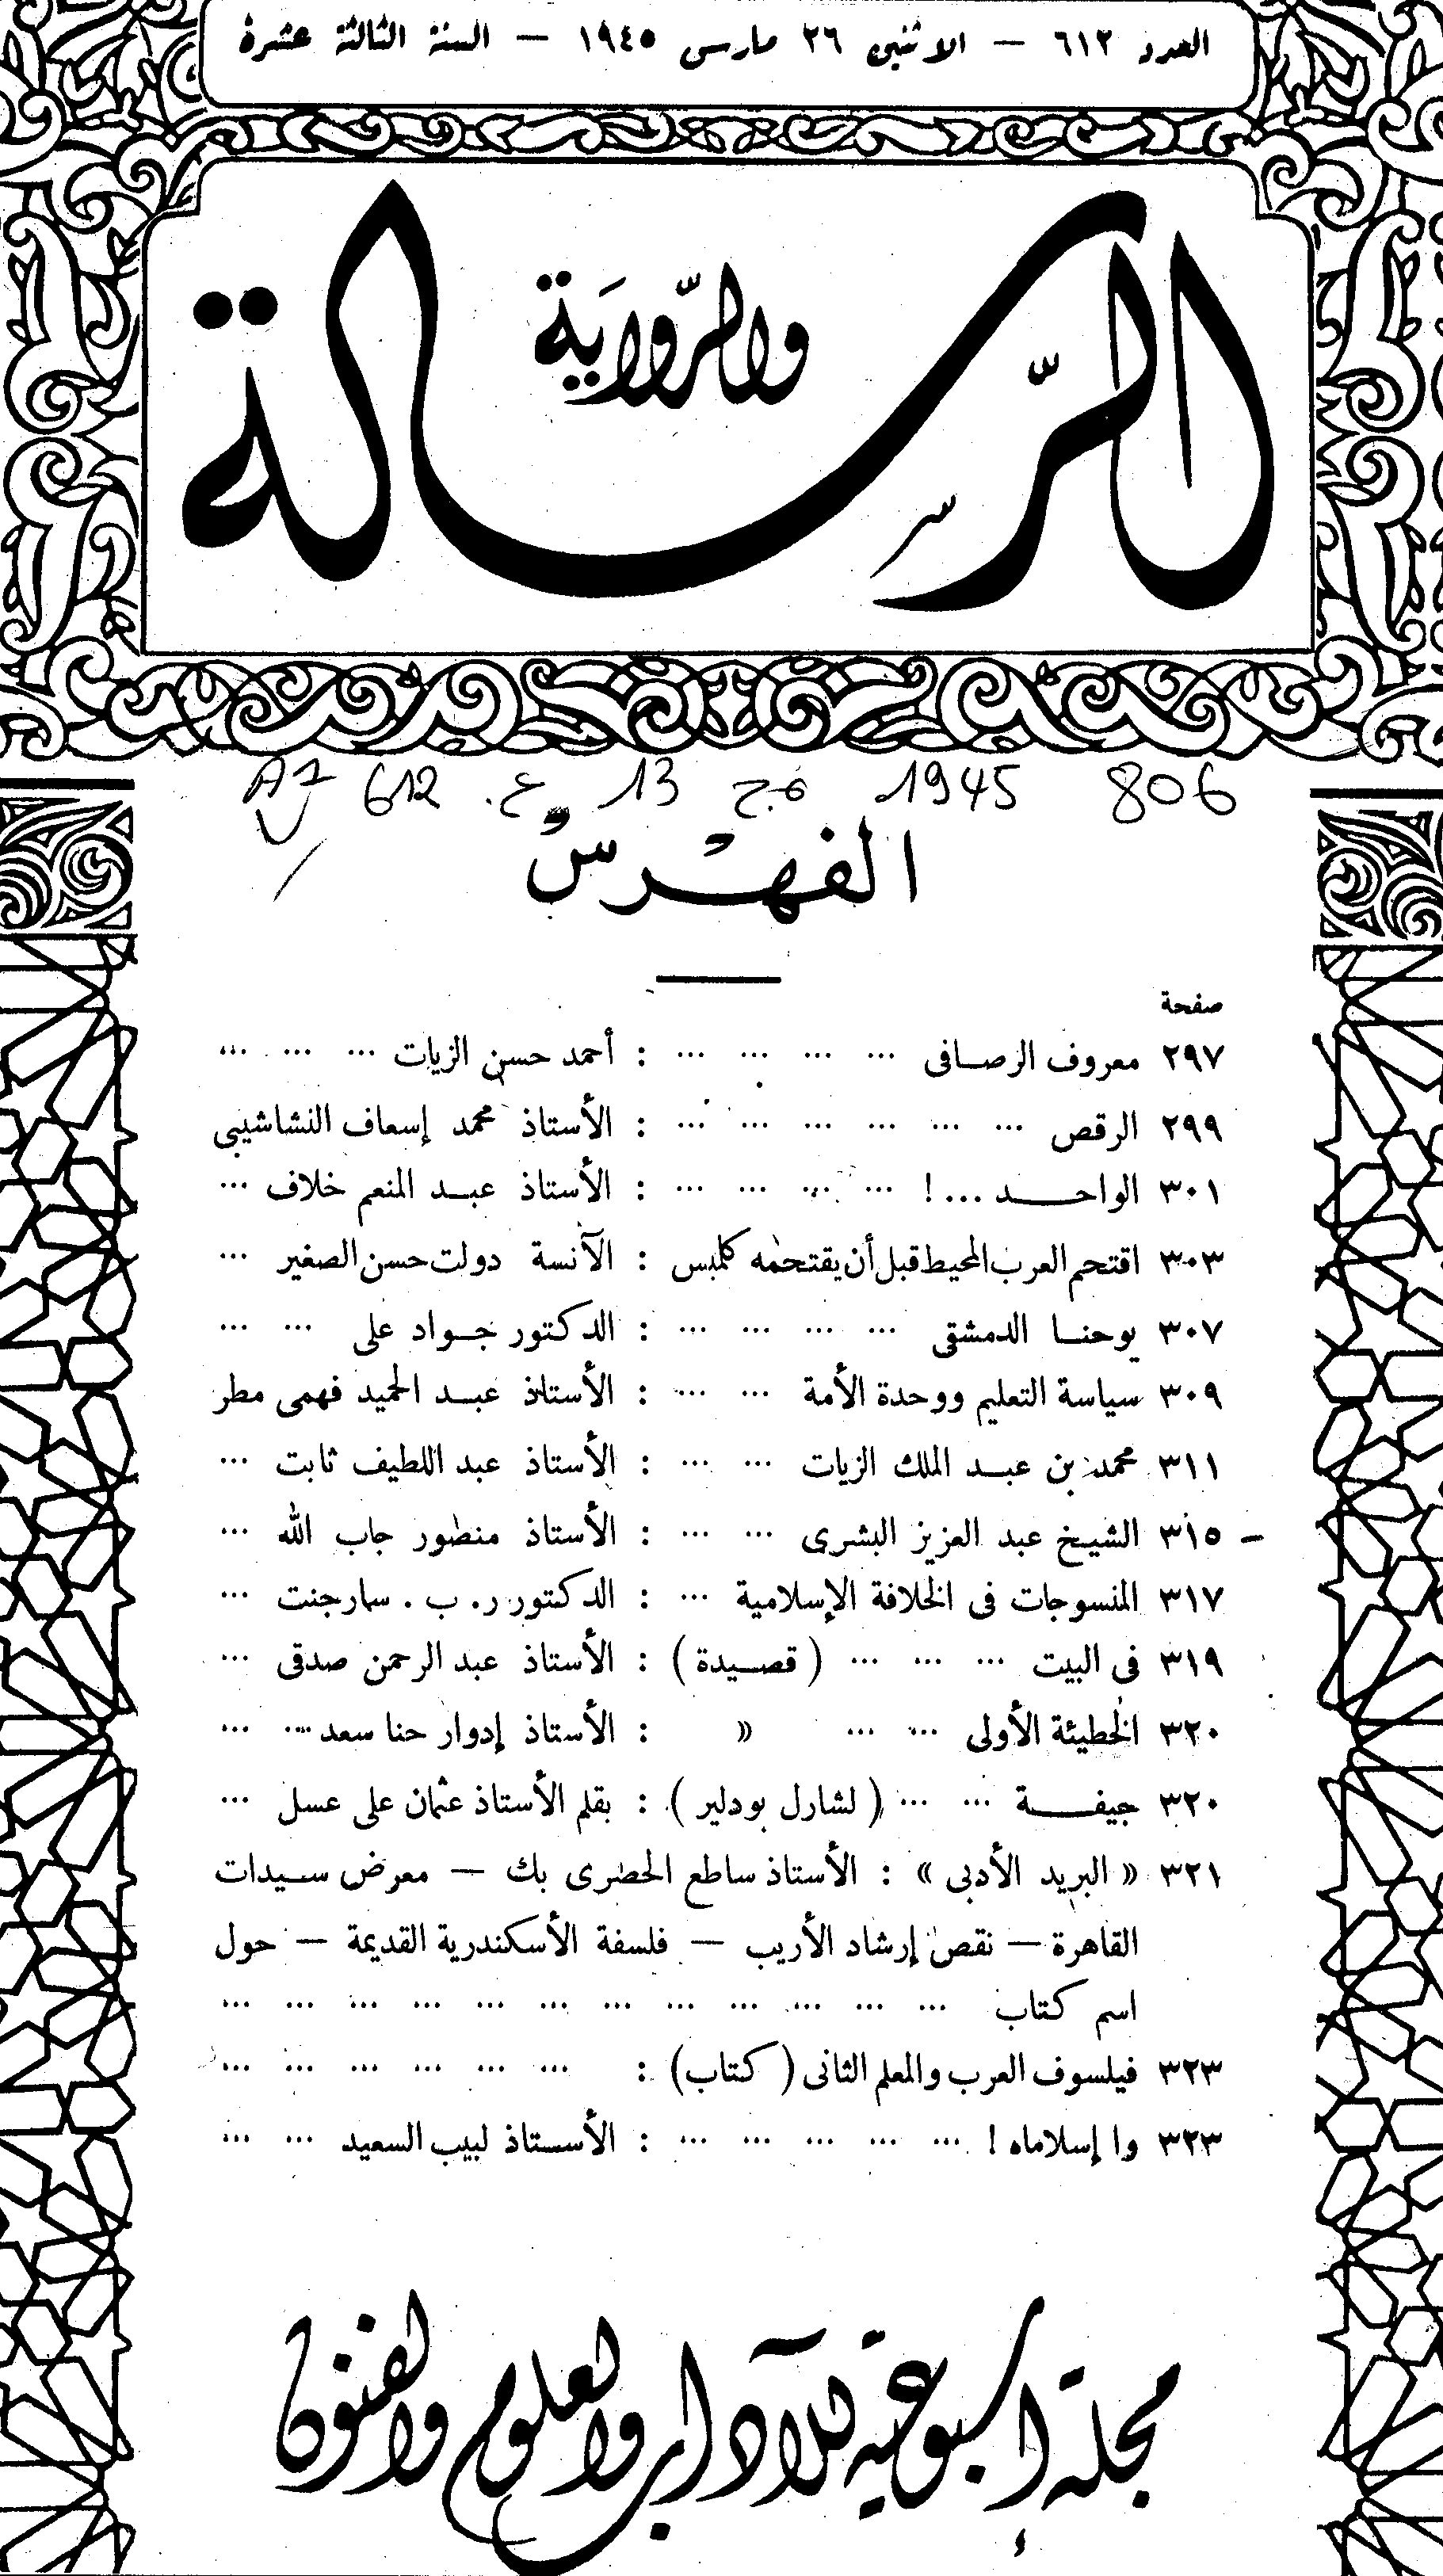 العدد ٦١٢ — الاثنين ٢٦ مارس ١٩٤٥ — السنة الثالثة عشرة
الرسالة
والرّواية
806 1945 13 ع. 612
الفهرس
صفحة
٢٩٧ معروف الرصافى ... ... ... ... : أحمد حسن الزيات ... ... ...
٢٩٩ الرقص ... ... ... ... ... ... : الأستاذ محمد إسعاف النشاشيبى
٣٠١ الواحـــد ...! ... ... ... ... : الأستاذ عبـد المنعم خلاف ...
٣٠٣ اقتحم العرب المحيط قبل أن يقتحمه كلمبس : الآنسة دولت حسن الصغير ...
٣٠٧ يوحنـا الدمشقى ... ... ... ... : الدكتور جـواد على ... ...
٣٠٩ سياسة التعليم ووحدة الأمة ... ... : الأستاذ عبـد الحميد فهمى مطر
٣١١ محمد بن عبـد الملك الزيات ... ... : الأستاذ عبد اللطيف ثابت ...
— ٣١٥ الشيخ عبد العزيز البشرى ... ... : الأستاذ منصور جاب الله ...
٣١٧ المنسوجات فى الخلافة الإسلامية ... : الدكتور ر. ب. سارجنت ...
٣١٩ فى البيت ... ... ... (قصـيدة) : الأستاذ عبد الرحمن صدقى ...
٣٢٠ الخطيئة الأولى ... ... » : الأستاذ إدوار حنا سعد ... ...
٣٢٠ جيفـــة ... ... (لشارل بودلير) : بقلم الأستاذ عثمان على عسل ...
٣٢١ « البريد الأدبى » : الأستاذ ساطع الحصرى بك — معرض سـيدات
القاهرة — نقص إرشاد الأريب — فلسفة الأسكندرية القديمة — حول
اسم كتاب ... ... ... ... ... ... ... ... ... ... ... ...
٣٢٣ فيلسوف العرب والمعلم الثانى (كتاب) : ... ... ... ... ... ...
٣٢٣ وا إسلاماه ! ... ... ... ... ... : الأسـتاذ لبيب السعيد ... ...
مجلة أسبوعية للآداب والعلوم والفنون